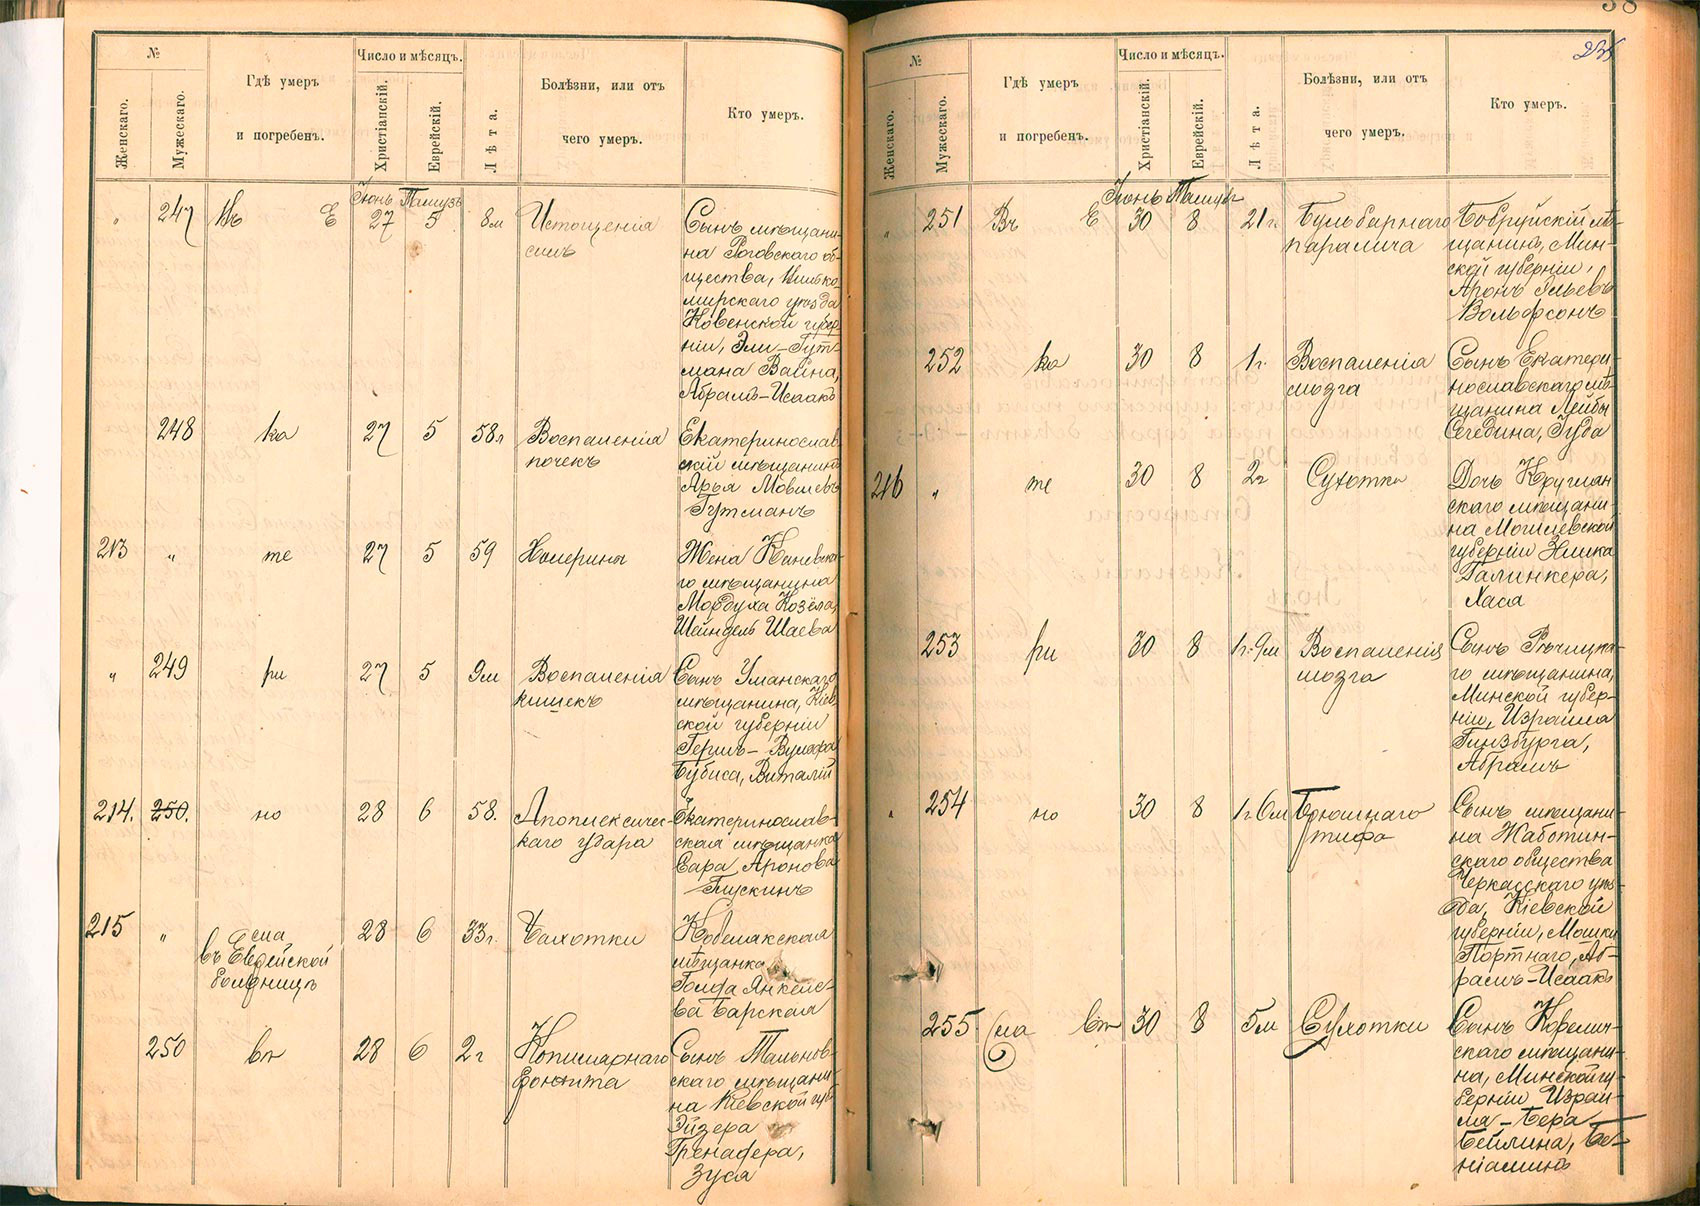 №
Женскаго.
Мужескаго.
Гдѣ умеръ
и погребенъ.
Число и мѣсяцъ.
Христіанскій.
Еврейскій.
Лѣта.
Болѣзни, или отъ
чего умеръ.
Кто умеръ.
Іюнь Тамузъ
" 247 Въ Е 27 5 8м Истощенія
силъ
Сынъ мѣщани-
на Роговскаго об-
щества, Вилько-
мирскаго уѣзда
Ковенской губер-
ніи, Эли-Гут-
мана Вайна,
Абрамъ-Исаакъ
248 ка 27 5 58л Воспаленія
почекъ
Екатеринослав-
скій мѣщанинъ
Арья Мовшевъ
Гутманъ
213 " те 27 5 59 Холерины
Жена Каневска-
го мѣщанина
Мордуха Козёла,
Шейндель Шаева
" 249 ри 27 5 9м Воспаленія
кишекъ
Сынъ Уманскаго
мѣщанина, Кіев-
ской губерніи
Гершъ-Вульфа
Бубиса, Виталій
214. 250. но 28 6 58. Апоплексичес-
каго удара
Екатеринослав-
ская мѣщанка
Сара Аронова
Глускинъ
215 " сла
въ Еврейской
больницѣ
28 6 33г. Чахотки
Кобелякская
мѣщанка
Голда Янкеле-
ва Барская
250 вт 28 6 2г Капилярнаго
бронхита
Сынъ Тальнов-
скаго мѣщани-
на Кіевской губ
Эйзера
Гренадера,
Зуся
38
235
№
Женскаго.
Мужескаго.
Гдѣ умеръ
и погребенъ.
Число и мѣсяцъ.
Христіанскій.
Еврейскій.
Лѣта.
Болѣзни, или отъ
чего умеръ.
Кто умеръ.
Іюнь Тамузъ
" 251 Въ Е 30 8 21г. Бульбарнаго
паралича
Бобруйскій мѣ-
щанинъ, Мин-
ской губерніи,
Аронъ Эльевъ
Вольфсонъ
252 ка 30 8 1г. Воспаленія
мозга
Сынъ Екатери-
нославскаго мѣ-
щанина Лейбы
Сегедина, Іуда
216 " те 30 8 2г Сухотка
Дочь Круглян-
скаго мѣщани-
на Могилевской
губерніи Зимка
Галинкера,
Хаса
253 ри 30 8 1г.9м Воспаленія
мозга
Сынъ Рѣчицка-
го мѣщанина,
Минской губер-
ніи, Израиля
Гинзбурга,
Абрамъ
" 254 но 30 8 1г.6м Брюшнаго
тифа
Сынъ мѣщани-
на Жаботин-
скаго общества
Черкасскаго уѣз-
да, Кіевской
губерніи, Мошки
Портнаго, Аб-
рамъ-Исаакъ
255 сла вт 30 8 5м Сухотки
Сынъ Корелич-
скаго мѣщани-
на, Минской гу-
берніи Израи-
ля-Бера
Бейлина, Бе-
ніаминъ